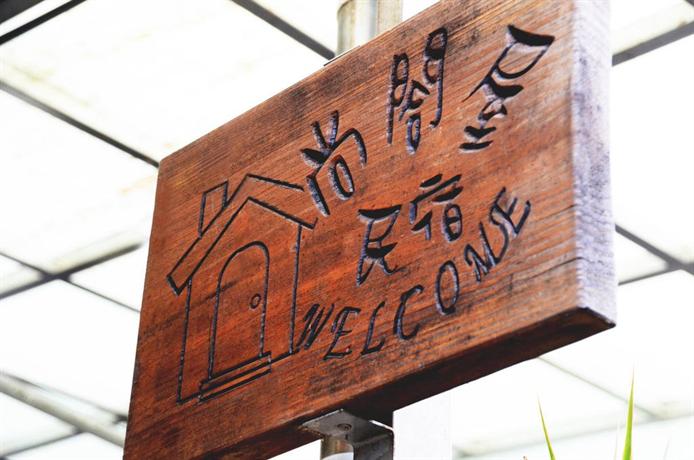 尚閣
民宿
WELCOME